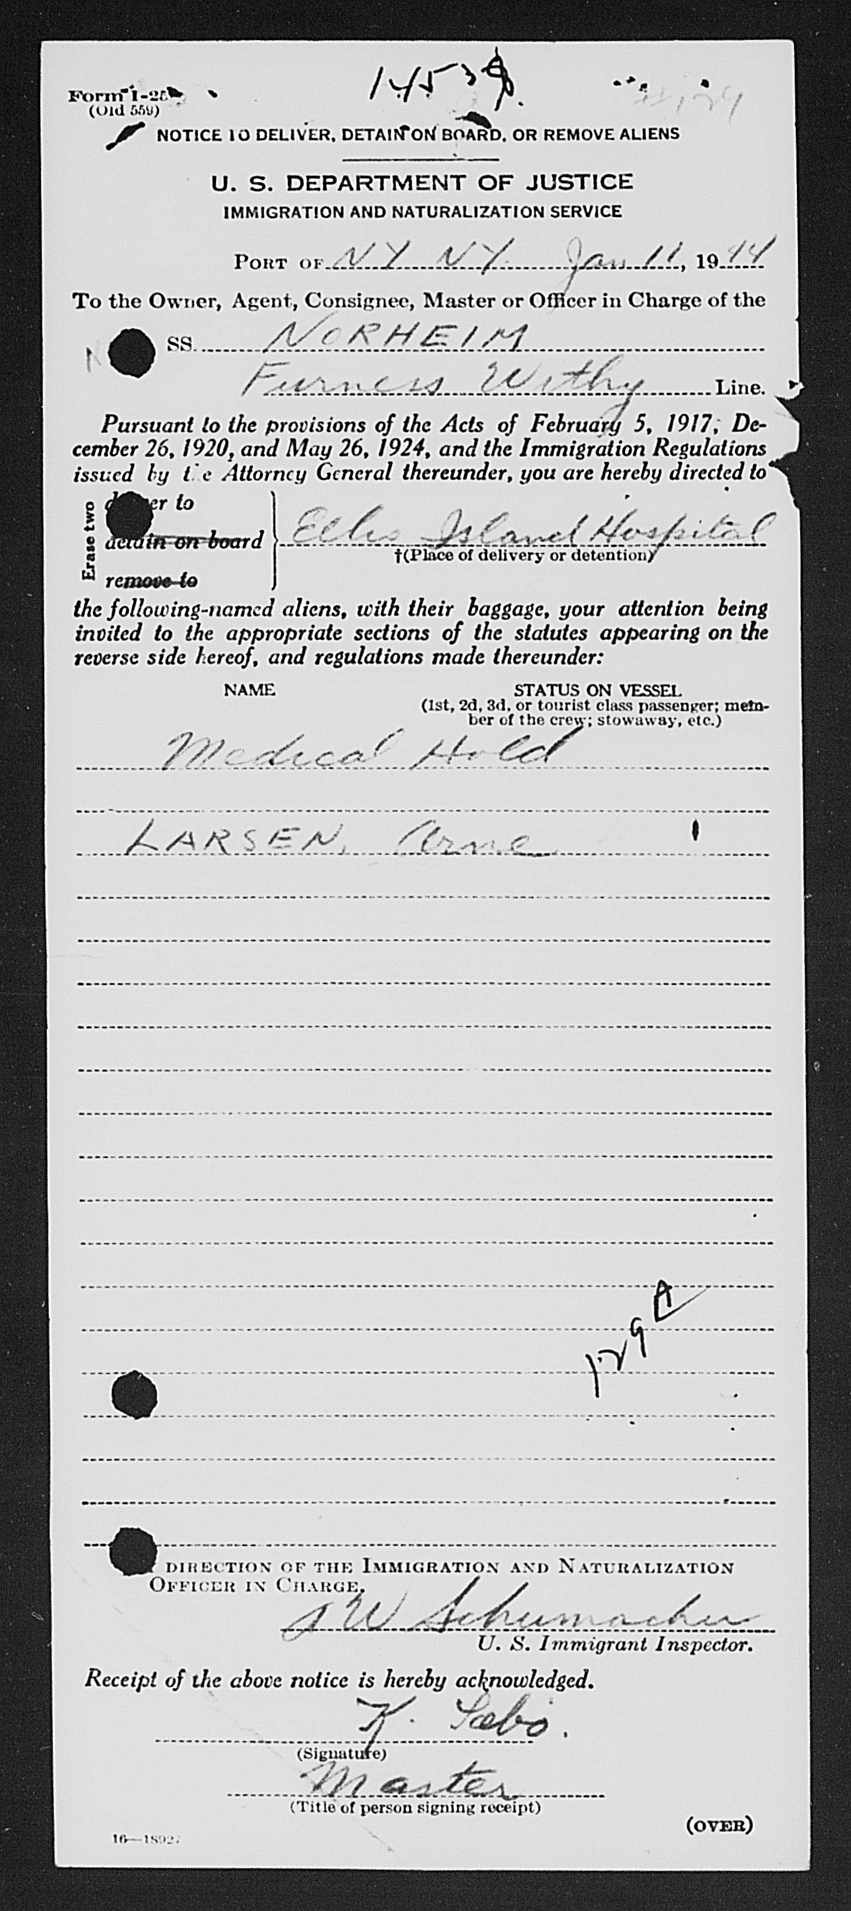 14538
Form I-25
(Old 559)
NOTICE TO DELIVER, DETAIN ON BOARD, OR REMOVE ALIENS
U. S. DEPARTMENT OF JUSTICE
IMMIGRATION AND NATURALIZATION SERVICE
PORT OF NY NY. Jan 11, 1944
To the Owner, Agent, Consignee, Master or Officer in Charge of the
SS. NORHEIM
Furness Withy Line.
Pursuant to the provisions of the Acts of February 5, 1917, De-
cember 26, 1920, and May 26, 1924, and the Immigration Regulations
issued by the Attorney General thereunder, you are hereby directed to
Erase two
er to
detain on board
remove to
Ellis Island Hospital
†(Place of delivery or detention)
the following-named aliens, with their baggage, your attention being
invited to the appropriate sections of the statutes appearing on the
reverse side hereof, and regulations made thereunder:
NAME STATUS ON VESSEL
(1st, 2d, 3d, or tourist class passenger; mem-
ber of the crew; stowaway, etc.)
Medical Hold
LARSEN, Arne
DIRECTION OF THE IMMIGRATION AND NATURALIZATION
OFFICER IN CHARGE.
W Schumacher
U. S. Immigrant Inspector.
Receipt of the above notice is hereby acknowledged.
K. Sæbö.
(Signature)
Master
(Title of person signing receipt)
(OVER)
16—18927